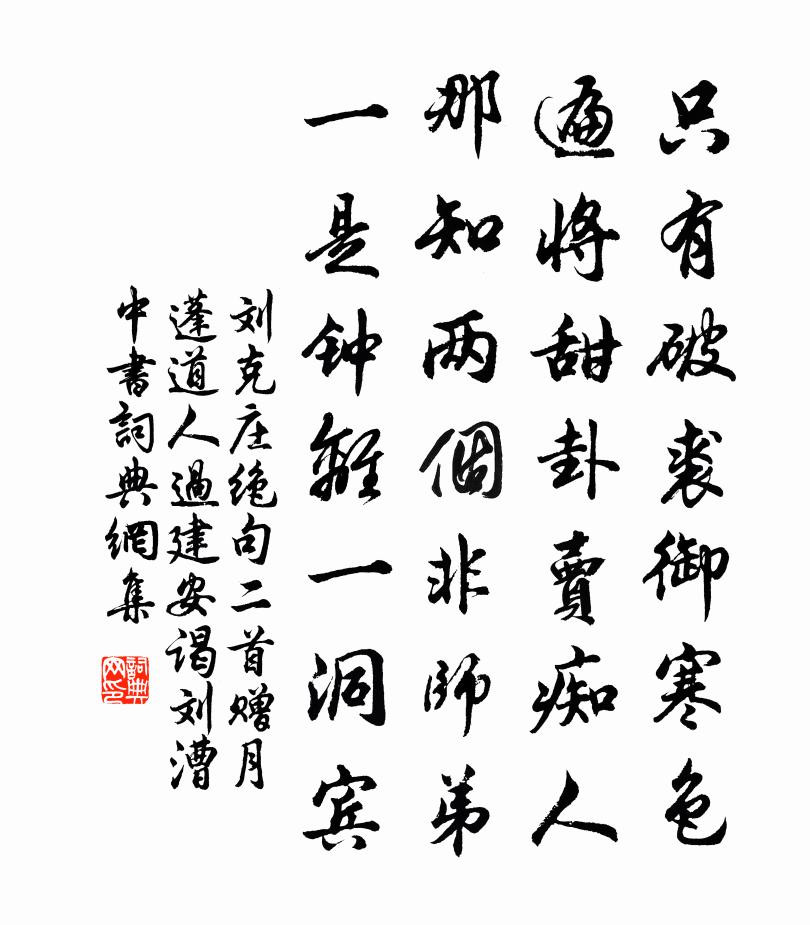 只有破裘御寒色
遍将甜卦賣痴人
那知两個非師弟
一是钟離一洞宾
刘克庄绝句二首赠月
蓬道人過建安谒刘漕
中書詞典網集
詞典网印